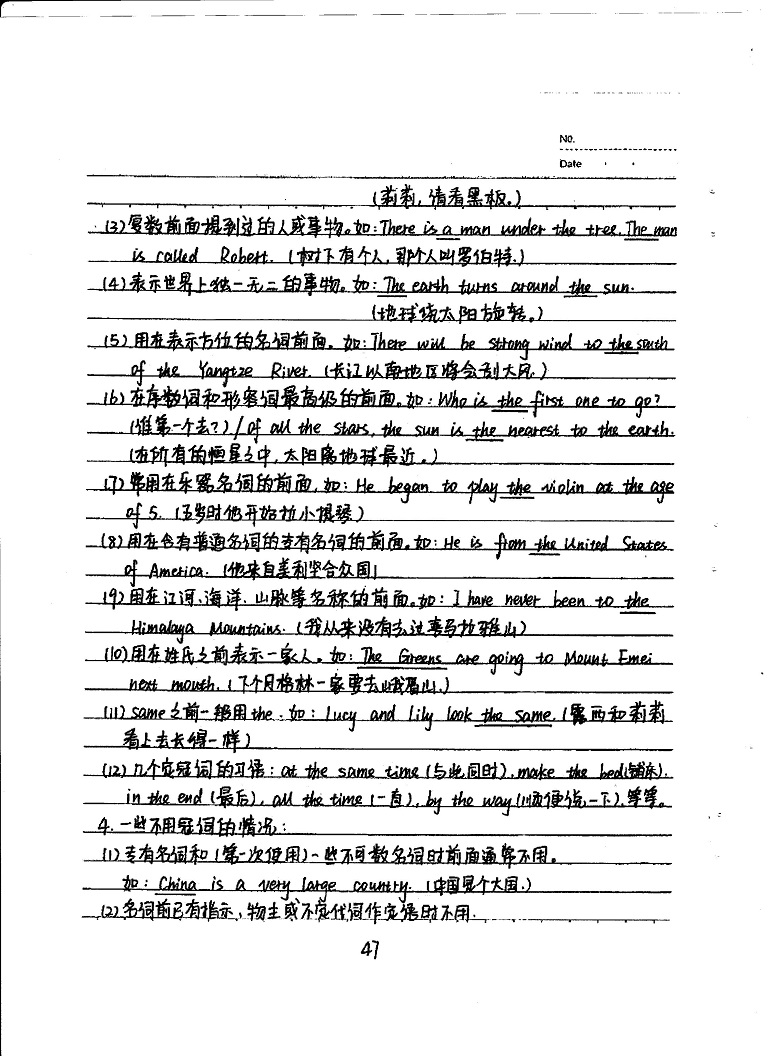 No.
Date
(莉莉,请看黑板。)
(3)复数前面提到过的人或事物。如:There is a man under the tree. The man
is called Robert. (树下有个人,那个人叫罗伯特.)
(4)表示世界上独一无二的事物。如:The earth turns around the sun.
(地球绕太阳旋转。)
(5)用在表示方位的名词前面。如:There will be strong wind to the south
of the Yangtze River. (长江以南地区将会刮大风.)
(6)在序数词和形容词最高级的前面。如:Who is the first one to go?
(谁第一个去?)/Of all the stars, the sun is the nearest to the earth.
(在所有的恒星之中,太阳离地球最近。)
(7)常用在乐器名词的前面,如:He began to play the violin at the age
of 5. (5岁时他开始拉小提琴)
(8)用在含有普通名词的专有名词的前面。如:He is from the United States
of America. (他来自美利坚合众国)
(9)用在江河、海洋、山脉等名称的前面。如:I have never been to the
Himalaya Mountains. (我从来没有去过喜马拉雅山)
(10)用在姓氏之前表示一家人。如:The Greens are going to Mount Emei
next mouth. (下个月格林一家要去峨眉山.)
(11) same之前一般用the.如:Lucy and Lily look the same. (露西和莉莉
看上去长得一样)
(12)几个定冠词的习语:at the same time (与此同时), make the bed(铺床),
in the end (最后), all the time (一直), by the way (顺便说一下),等等。
4.一些不用冠词的情况:
(1)专有名词和(第一次使用)一些不可数名词时前面通常不用。
如:China is a very large country. (中国是个大国.)
(2)名词前已有指示、物主或不定代词作定语时不用.
47